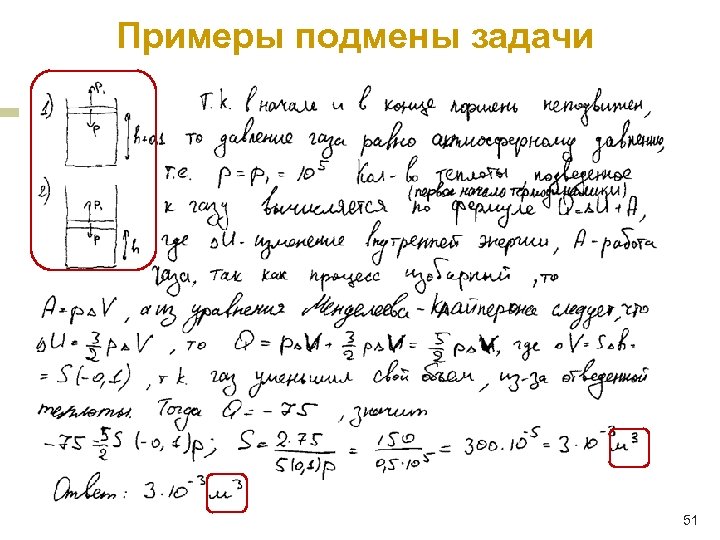 Примеры подмены задачи
1) P₁ P h+0,1
Т.к. в начале и в конце поршень неподвижен,
то давление газа равно атмосферному давлению,
т.е. p = p₁ = 10⁵ Кол-во теплоты, подведенное
(первое начало термодинамики)
2) P₁ P h
к газу вычисляется по формуле Q=ΔU+A,
где ΔU-изменение внутренней энергии, A-работа
газа, так как процесс изобарный, то
A=pΔV, а из уравнения Менделеева-Клайперона следует, что
ΔU=3/2 pΔV, то Q = pΔV+3/2 pΔV = 5/2 pΔV, где ΔV=SΔh=
= S(-0,1), т.к. газ уменьшил свой объем, из-за отведенной
теплоты. Тогда Q = -75, значит
-75=5/2 S (-0,1)p; S = 2·75/5(0,1)p = 150/0,5·10⁵ = 300·10⁻⁵=3·10⁻³ м³
Ответ: 3·10⁻³ м³
51